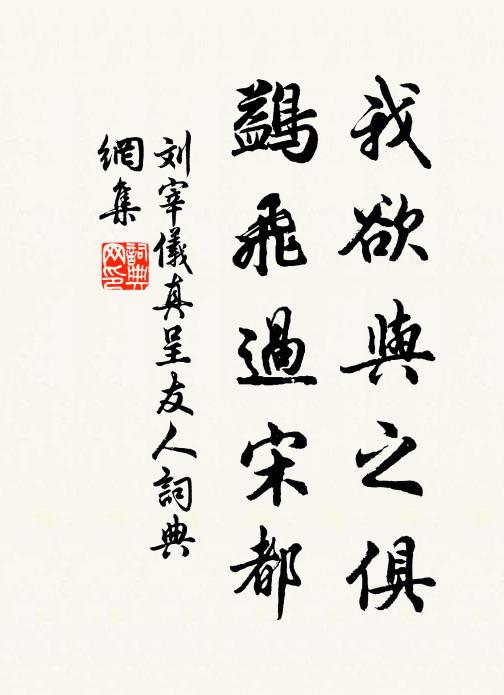 我欲與之俱
鷁飛過宋都
刘宰儀真呈友人詞典
網集
詞典
网印